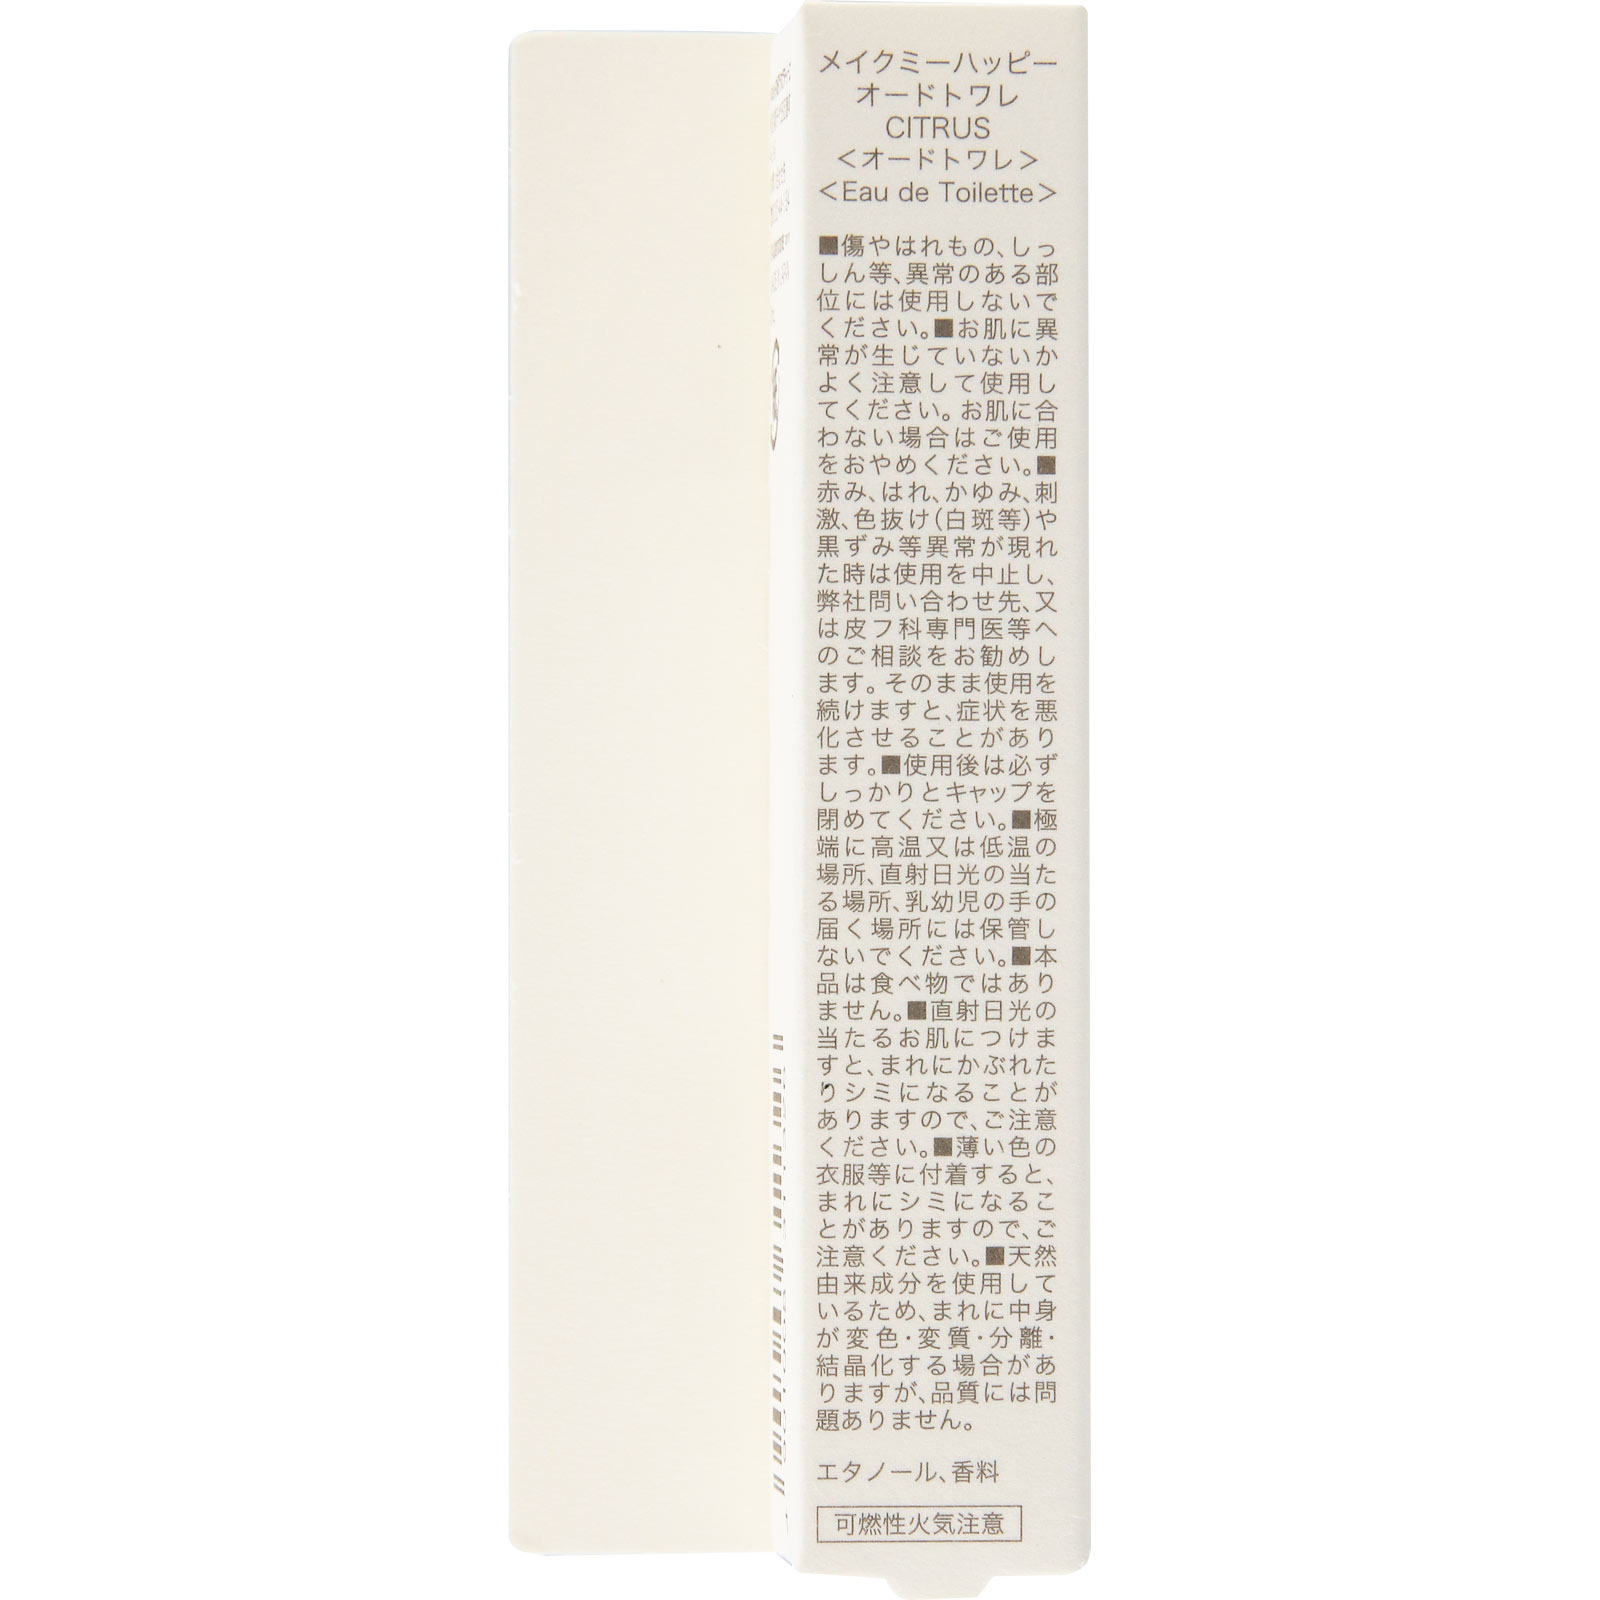 メイクミーハッピー
オードトワレ
CITRUS
＜オードトワレ＞
＜Eau de Toilette＞
■傷やはれもの、しっ
しん等、異常のある部
位には使用しないで
ください。■お肌に異
常が生じていないか
よく注意して使用し
てください。お肌に合
わない場合はご使用
をおやめください。■
赤み、はれ、かゆみ、刺
激、色抜け(白斑等)や
黒ずみ等異常が現れ
た時は使用を中止し、
弊社問い合わせ先、又
は皮フ科専門医等へ
のご相談をお勧めし
ます。そのまま使用を
続けますと、症状を悪
化させることがあり
ます。■使用後は必ず
しっかりとキャップを
閉めてください。■極
端に高温又は低温の
場所、直射日光の当た
る場所、乳幼児の手の
届く場所には保管し
ないでください。■本
品は食べ物ではあり
ません。■直射日光の
当たるお肌につけま
すと、まれにかぶれた
りシミになることが
ありますので、ご注意
ください。■薄い色の
衣服等に付着すると、
まれにシミになるこ
とがありますので、ご
注意ください。■天然
由来成分を使用して
いるため、まれに中身
が変色・変質・分離・
結晶化する場合があ
りますが、品質には問
題ありません。
エタノール、香料
可燃性火気注意